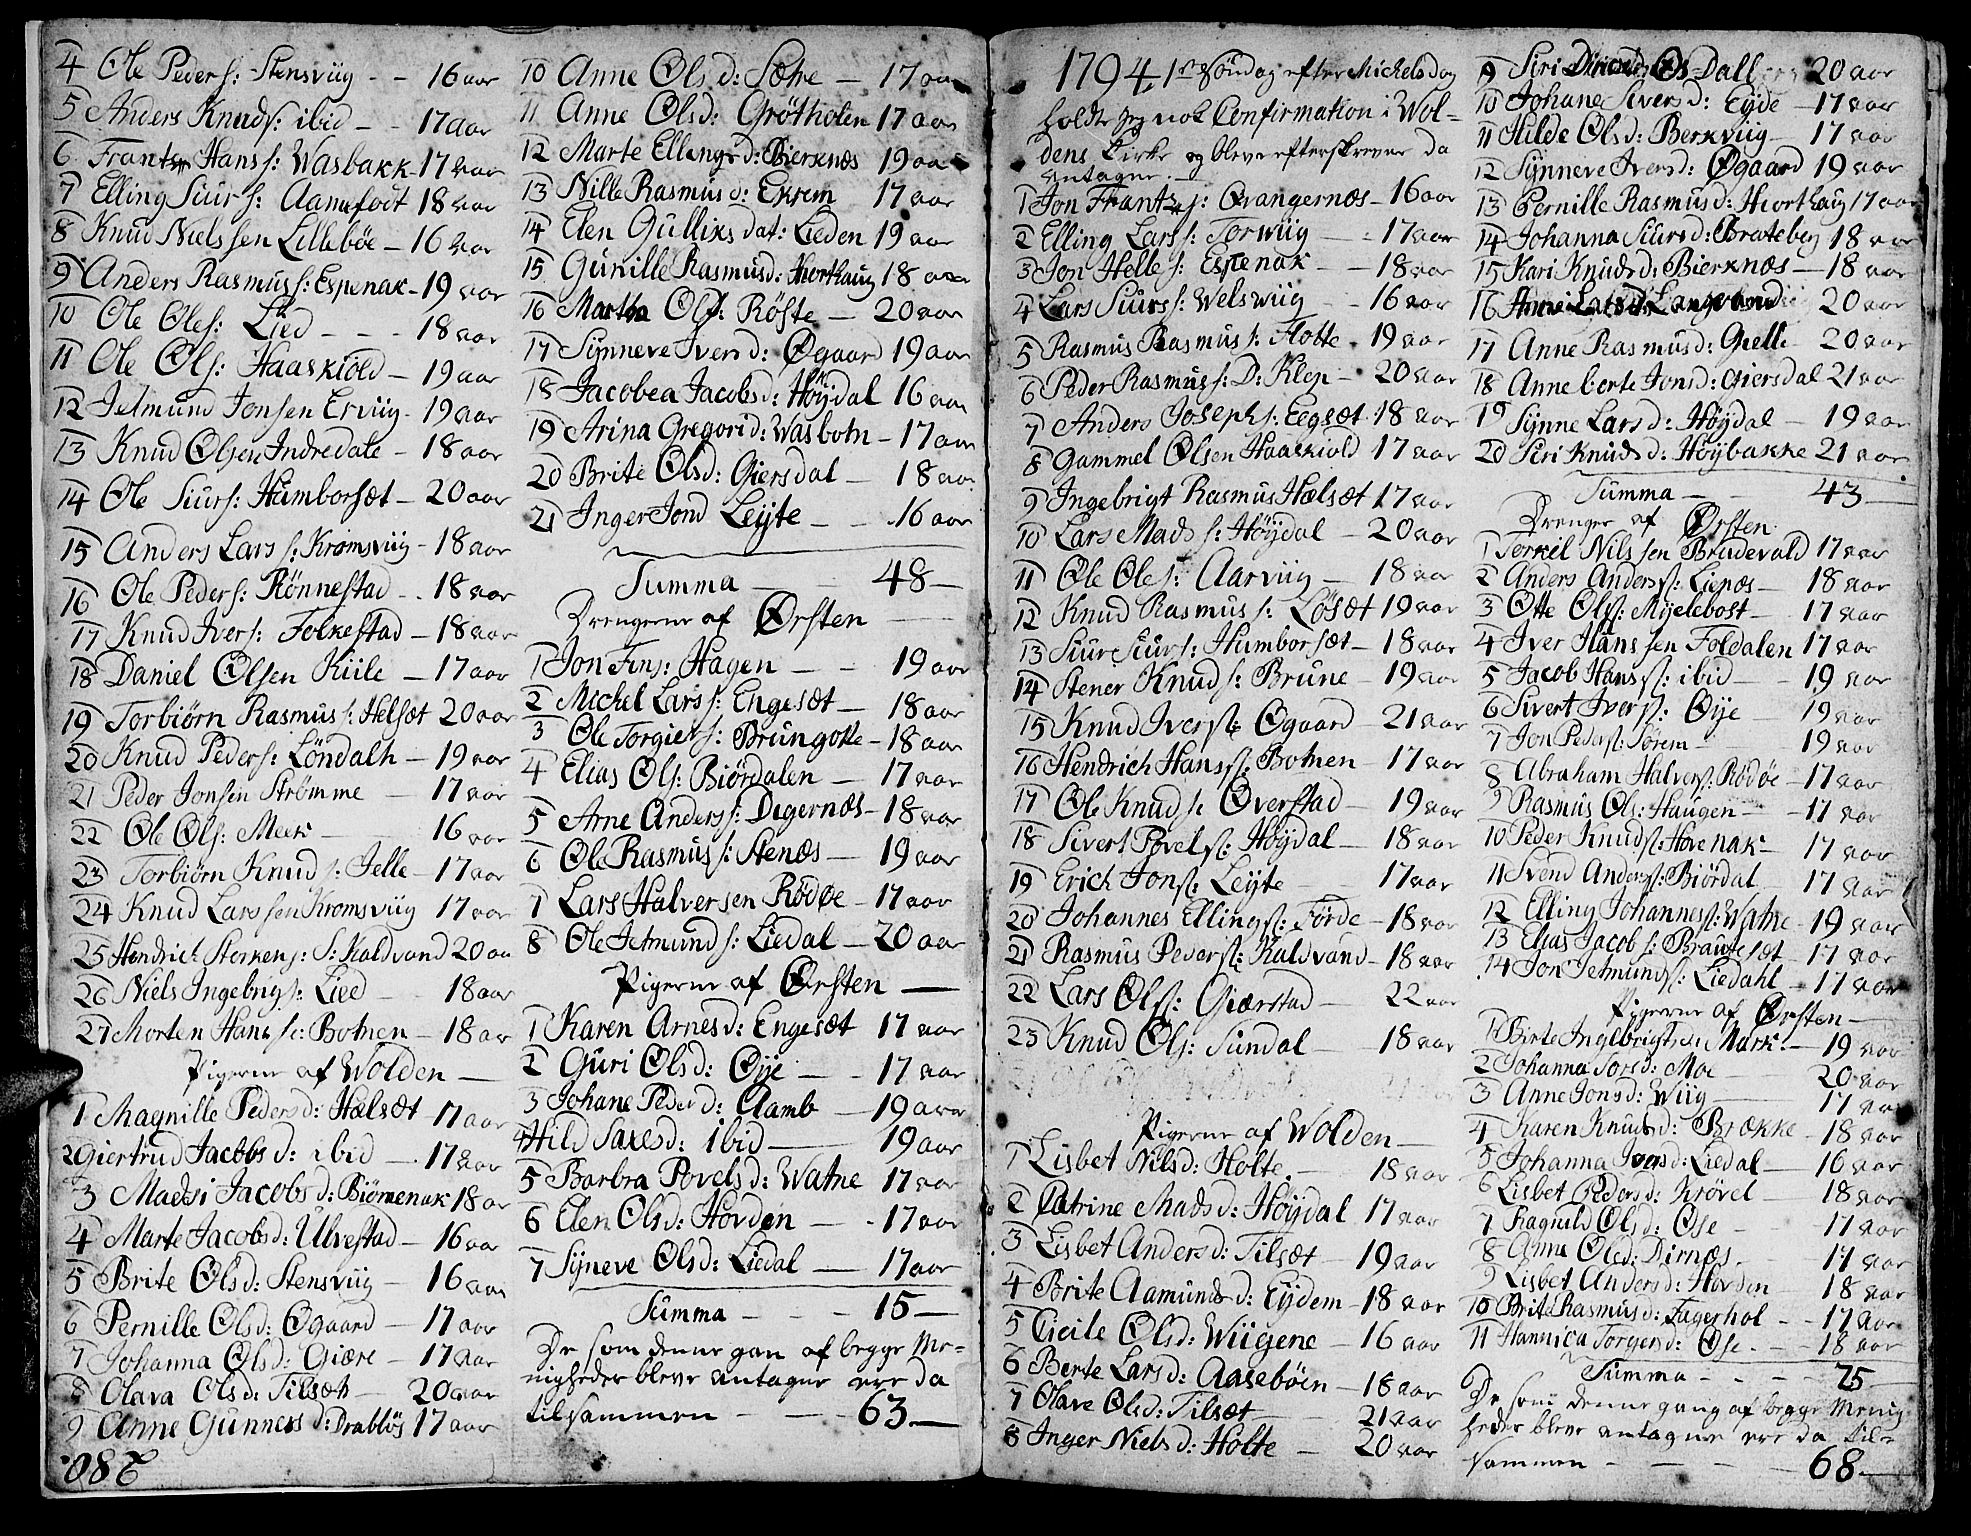 4 Ole Peders: Stensviig - - 16 aar
5 Anders Knuds: ibid - - 17 aar
6 Frantz Hanss: Wasbakk - 17 aar
7 Elling Siurs: Aamefodt 18 aar
8 Knud Nielssen Lillebøe - 16 aar
9 Anders Rasmuss: Espenak - 19 aar
10 Ole Oles: Lied - - - 18 aar
11 Ole Ols: Haaskiold - 19 aar
12 Jetmund Jonsen Erviig - 19 aar
13 Knud Olsen Indredale - 18 aar
14 Ole Siurs: Humborset - 20 aar
15 Anders Lars s: Kromsviig - 18 aar
16 Ole Peders: Rönnestad - . 18 aar
17 Knud Ivers: Folkestad - 18 aar
18 Daniel Olsen Kiile - 17 aar
19 Torbiørn Rasmus s: Helsæt 20 aar
20 Knud Peders: Löndalh - 19 aar
21 Peder Jonsen Strømme - 17 aar
22 Ole Ols: Meek - 16 aar
23 Torbiørn Knud s: Jelle - 17 aar
24 Knud Larssen Kromsviig 17 aar
25 Hendrich Sterkens: S: Kaldvand 20 aa
26 Niels Ingebrigs: Lied - 18 aar
27 Morten Hans s: Botnen - 18 ar
Pigerne af Wolden -
1 Magnille Peders d: Hælsæt - 17 aar
2 Giertrud Jacobs d: ibid - . 17 aar
3 Madsi Jacobs d: Biørnenak 18 ar
4 Marte Jacobsd: Ulvestad - 16 aar
5 Brite Olsd: Stensviig - 16 aar
6 Pernille Olsd: Øgaard - 17 aar
7 Johanna Olsd: Giære - 17 aar
8 Olava Olsd: Tilsæt - 20 aar
9 Anne Gunnersd: Drabløs 17 aar
280.
10 Anne Olsd: Sætre - 17 aar
11 Anne Olsd: Grøtholen 17 aar
12 Marte Ellingsd: Bierknæs 19 aar
13 Nille Rasmusd: Ekrem 17 aar
14 Elen Gulliks dat: Lieden 19 aar
15 Gunille Rasmusd: Hiorthaug 18 aar
16 Martha Ols: Röste - 20 aar
17 Synneve Ivers d: Øgaard 19 aar
18 Jacobea Jacobsd: Höydal 16 aar
19 Arina Gregorid: Wasbotn - 17 aar
20 Brite Olsd: Giersdal - 18 aar
21 Inger Jond Leyte - - . 16 aar
Summa - 48 -
Drengerne af Ørsten -
1 Jon Fins: Hagen - - 19 aar
2 Michel Lars s: Engesæt - 18 aar
3 Ole Torgiers: Brungotte - 18 aar
4 Elias Ols: Biørdalen - 17 aar
5 Arne Anders s: Digernæs - 18 aar
6 Ole Rasmus s: Stenæs - 19 aar
7 Lars Halversen Rødøe - 17 aar
8 Ole Jetmund s: Liedal - 20 aar
Pigerne af Ørsten -
1 Karen Arnesd: Engesæt 17 aar
2 Guri Olsd: Øye - - 17 aar
3 Johane Peder d: Aamb - 19 aar
4 Hild Saxesd: ibid - 19 aar
5 Barbra Povelsd: Watne 17 aar
6 Elen Olsd: Hovden - - 17 aar
7 Syneve Olsd: Liedal - 17 aar
Summa - - 15 -
De som denne gan af begge Me-
nigheder bleve antagne ere da
tilsammen - - 63 -
1794, 1ste Søndag efter Michelsdag
holdt jeg nok Confirmation i Wol-
dens Kirke og bleve efterskrevne da
antagne. -
1 Jon Frantz s: Qvangernæs - 16 aar
2 Elling Lars s: Torwiig - - 17 aar
3 Jon Helle s: Espenak - - 18 aar
4 Lars Siurss: Welswiig - 16 aar
5 Rasmus Rasmus s: Flotte - 19 aar
6 Peder Rasmus s: D: Klep - 20 aar
7 Anders Josephs: Eegsæt 18 aar
8 Gammel Olsen Haaskiold 17 aar
9 Ingebrigt Rasmus Hælsæt 17 aar
10 Lars Mads s: Höydal - 20 aar
11 Ole Ole s: Aarviig - 18 aar
12 Knud Rasmus s: Løsæt 19 aar
13 Siur Siurs: Humborsæt - 18 aar
14 Stener Knuds: Brune - 19 aar
15 Knud Iverss: Øgaard - 21 aar
16 Hendrich Hanss: Botnen - 17 aar
17 Ole Knud s: Øverstad - 19 aar
18 Sivert Povels: Höydal - 18 aar
19 Erich Jons: Leyte - 17 aar
20 Johannes Ellings: Förde - 18 aar
21 Rasmus Peders: Kaldvand - 18 aar
22 Lars Ols: Giærstad - 22 aar
23 Knud Ols: Sundal - 18 aar
Pigerne af Wolden -
1 Lisbet Nilsd: Holte. - 18 aar
2 Catrine Madsd: Höydal 17 aar
3 Lisbet Andersd: Tilsæt - 19 aar
4 Brite Aamunds d: Eydem - 18 aar
5 Cicile Olsd: Wiigene - 16 aar
6 Berte Larsd: Aasebøen - 18 aar
7 Olave Olsd: Tilsæt - 21 aar
8 Inger Niels d: Holte - 20 aar
9 Siri Dall 20 aar
10 Johane Sivers d: Eyde - 17 aar
11 Hilde Olsd: Berkviig - 17 aar
12 Synneve Ivers d: Øgaard 19 aar
13 Pernille Rasmusd: Hiorthaug 17 aar
14 Johanna Siursd: Brateberg 18 aar
15 Kari Knudsd: Bierknæs - 18 aar
16 Anne 20 aar
17 Anne Rasmusd: Gielle - 20 aar
18 Anne berte Jonsd: Giersdal 21 aar
19 Synne Larsd: Höydal - 19 aar
20 Siri Knuds d: Höybakke 21 aar
Summa - - 43 -
Drenger af Ørsten.
1 Terkel Nilssen Brudevald 17 aar
2 Anders Anderss: Lienæs - 18 aar
3 Otte Ols: Myelebost - 17 aar
4 Iver Hanssen Foldalen 17 aar
5 Jacob Hanss: ibid - - 19 aar
6 Sivert Ivers: Øye - 19 aar
7 Jon Peders: Sørem - 19 aar
8 Abraham Halvers: Rødøe - 17 aar
9 Rasmus Ols: Haugen - - 17 aar
10 Peder Knuds: Hovenak - 17 aar
11 Svend Anders: Biørdal - 17 aar
12 Elling Johanness: Watne - 19 aar
13 Elias Jacob s: Brautesæt - 17 aar
14 Jon Jetmunds: Liedahl - 17 aar
Pigerne af Ørsten -
1 Birte Ingebrigtsd: Mark: - 19 aar
2 Johanna Torsd: Moe - 20 aar
3 Anne Jonsd: Wiig - 17 aar
4 Karen Knudsd: Brække - 18 aar
5 Johanna Jonsd: Liedal - 16 aar
6 Lisbet Pedersd: Krøvel - 18 aar
7 Ragnild Olsd: Øse - 17 aar
8 Anne Olsd: Dirnæs. - 17 aar
9 Lisbet Anders d: Hovden - 18 aar
10 Brite Rasmusd: Fagerhol - - 17 aar
11 Hannica Torgersd: Øse. - - 18 aar
Summa - - - - 25 -
De som denne gang af begge Menig-
heder bleve antagne ere da til-
sammen - - - - 68 -